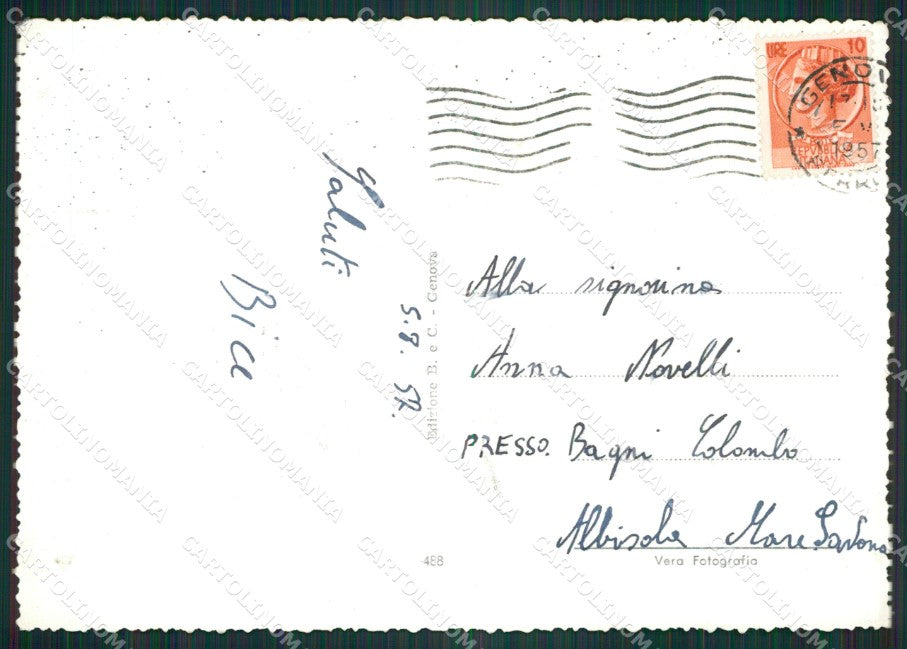 LIRE 10
GENOV
1957
REPUBBLICA
ITALIANA
Saluti
Bice
5.8.57.
Edizione B. e C. - Genova
Alla signorina
Anna Novelli
PRESSO. Bagni Colombo
Albisola Mare Savona
488
Vera Fotografia
CARTOLINOMANIA